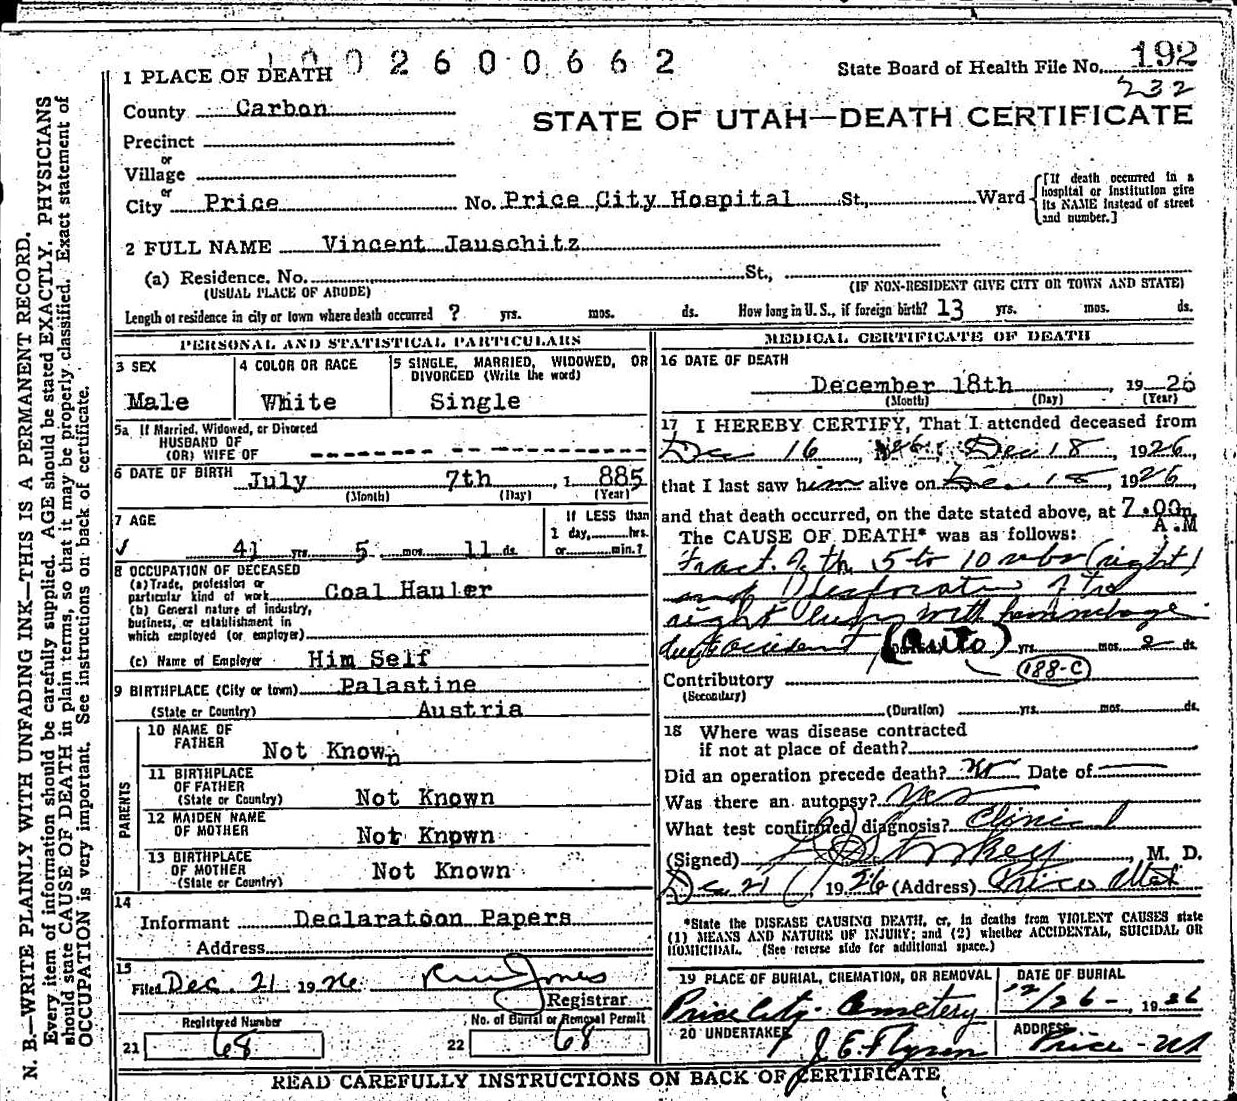 1 0 0 2 6 0 0 6 6 2
State Board of Health File No. 192
232
1 PLACE OF DEATH
County Carbon
STATE OF UTAH—DEATH CERTIFICATE
Precinct
or
Village
or
City Price No. Price City Hospital St., Ward
[If death occurred in a hospital or institution give its NAME instead of street and number.]
2 FULL NAME Vincent Jauschitz
(a) Residence. No. St.,
(USUAL PLACE OF ABODE) (IF NON-RESIDENT GIVE CITY OR TOWN AND STATE)
Length of residence in city or town where death occurred ? yrs. mos. ds. How long in U. S., if foreign birth? 13 yrs. mos. ds.
PERSONAL AND STATISTICAL PARTICULARS
3 SEX
Male
4 COLOR OR RACE
White
5 SINGLE, MARRIED, WIDOWED, OR
DIVORCED (Write the word)
Single
5a If Married, Widowed, or Divorced
HUSBAND OF
(OR) WIFE OF
6 DATE OF BIRTH July 7th, 1 885
(Month) (Day) (Year)
7 AGE
41 yrs. 5 mos. 11 ds.
If LESS than
1 day, hrs.
or min.?
8 OCCUPATION OF DECEASED
(a) Trade, profession or
particular kind of work Coal Hauler
(b) General nature of industry,
business, or establishment in
which employed (or employer)
(c) Name of Employer Him Self
9 BIRTHPLACE (City or town) Palastine
(State or Country) Austria
PARENTS
10 NAME OF
FATHER Not Known
11 BIRTHPLACE
OF FATHER
(State or Country) Not Known
12 MAIDEN NAME
OF MOTHER Not Knpwn
13 BIRTHPLACE
OF MOTHER
(State or Country) Not Known
14
Informant Declaratoon Papers
Address
15
Filed Dec. 21 1926 Jones
Registrar
Registered Number
21 68
No. of Burial or Removal Permit
22 68
MEDICAL CERTIFICATE OF DEATH
16 DATE OF DEATH
December 18th, 1926
(Month) (Day) (Year)
17 I HEREBY CERTIFY, That I attended deceased from
Dec 16, 1926, Dec 18, 1926,
that I last saw him alive on Dec 18, 1926,
and that death occurred, on the date stated above, at 7.00m
A.M
The CAUSE OF DEATH* was as follows:
Fract. of the 5 to 10 ribs (right)
and Perforation of the
right lung with hemmorhage
due to accident (Auto) yrs. mos. 2 ds.
188-C
Contributory
(Secondary)
(Duration) yrs. mos. ds.
18 Where was disease contracted
if not at place of death?
Did an operation precede death? no Date of
Was there an autopsy?
What test confirmed diagnosis? Clinical
(Signed) , M. D.
Dec 21, 1926 (Address) Price Utah
*State the DISEASE CAUSING DEATH, or, in deaths from VIOLENT CAUSES state
(1) MEANS AND NATURE OF INJURY; and (2) whether ACCIDENTAL, SUICIDAL OR
HOMICIDAL. (See reverse side for additional space.)
19 PLACE OF BURIAL, CREMATION, OR REMOVAL
Price City Cemetery
DATE OF BURIAL
12/26-, 1926
20 UNDERTAKER
J. E. Flynn
ADDRESS
Price - Ut
READ CAREFULLY INSTRUCTIONS ON BACK OF CERTIFICATE
N. B.—WRITE PLAINLY WITH UNFADING INK—THIS IS A PERMANENT RECORD.
Every item of information should be carefully supplied. AGE should be stated EXACTLY. PHYSICIANS
should state CAUSE OF DEATH in plain terms, so that it may be properly classified. Exact statement of
OCCUPATION is very important. See instructions on back of certificate.